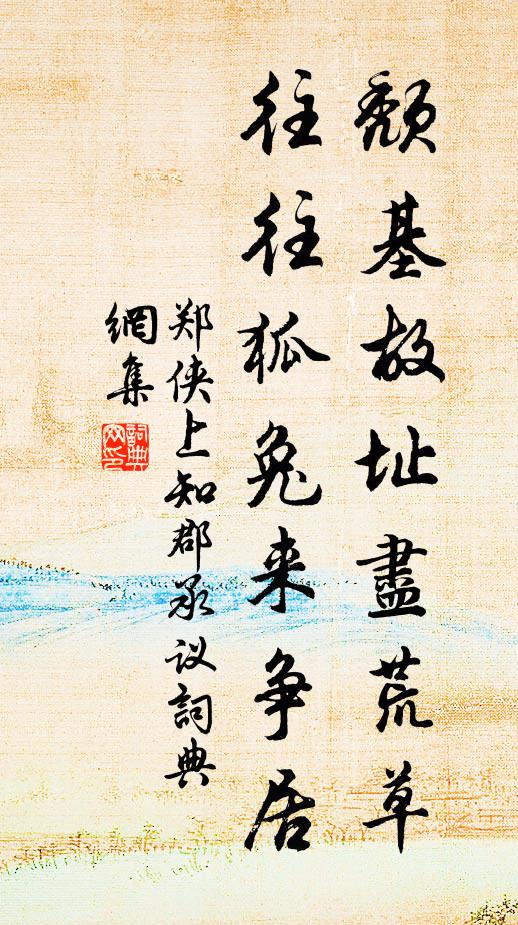 颓基故址盡荒草
往往狐兔来争居
郑侠上知郡承议詞典
網集
詞典